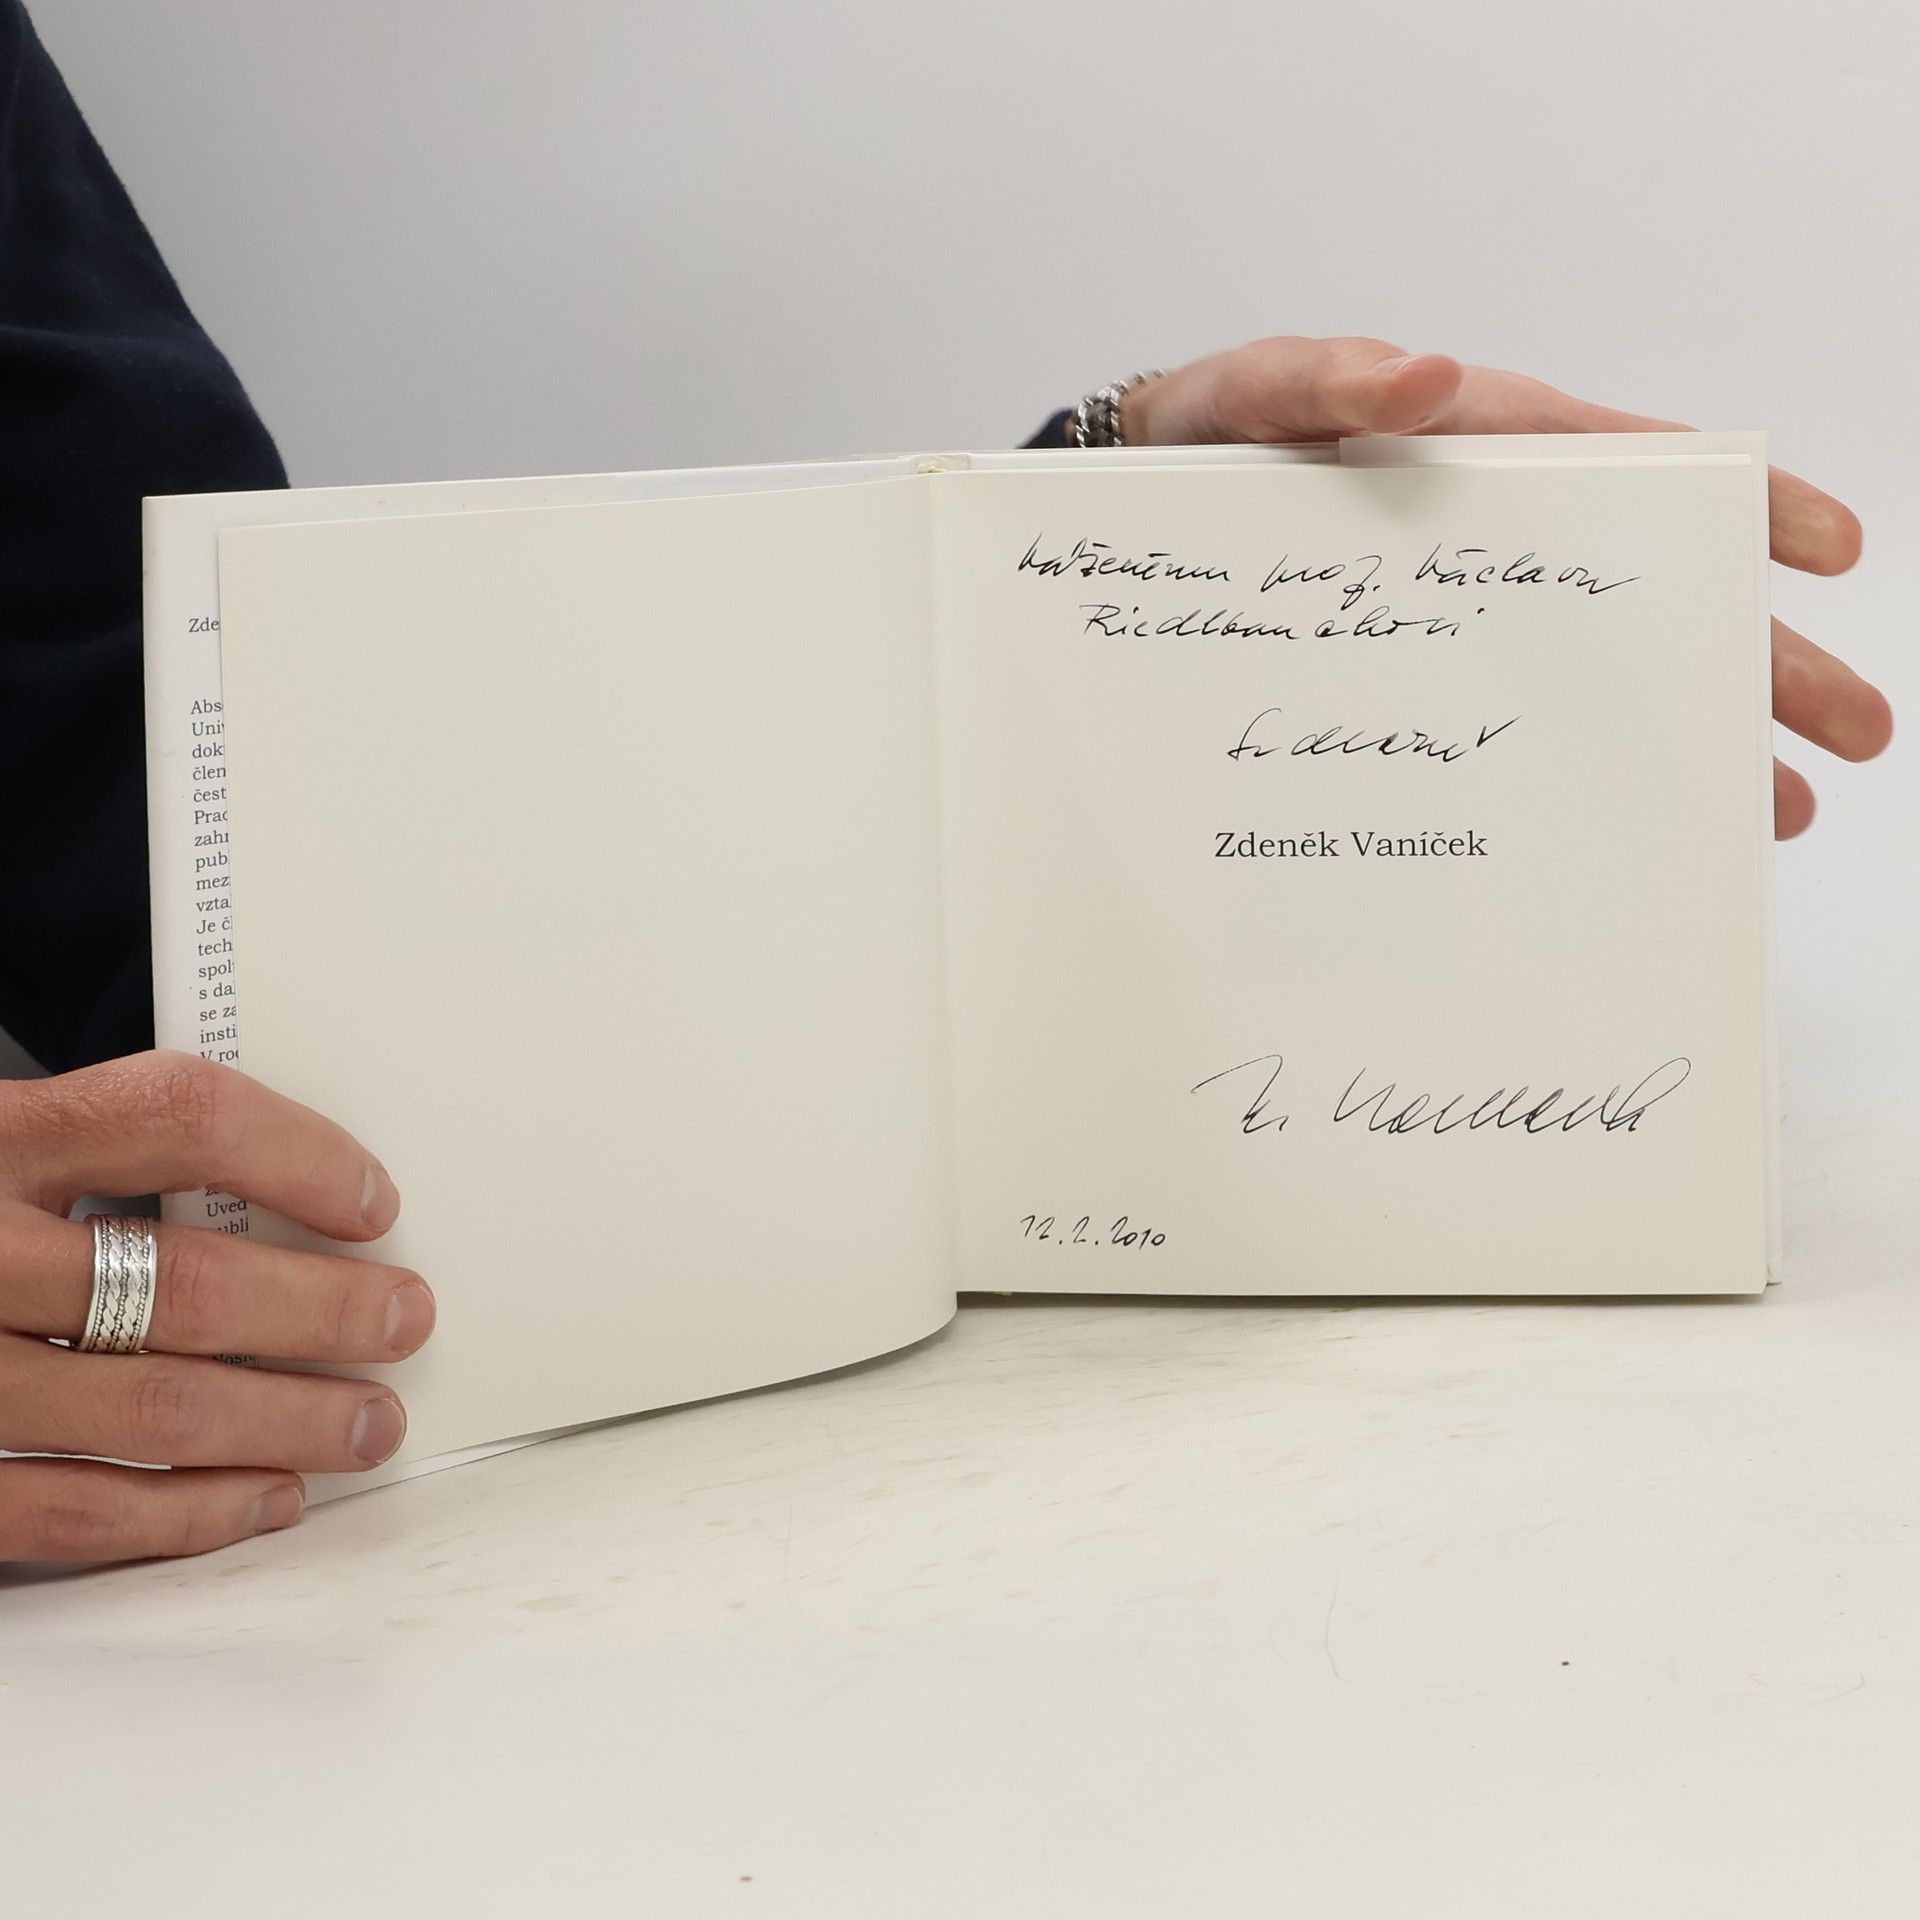 Zde
Abs
Univ
dok
člen
čest
Prac
zahr
pub
mez
vzta
Je č
tech
spol
s da
se zá
insti
V roc
Uved
publi
Váženému prof. Václavu
Riedlbauchovi
Srdečně
Zdeněk Vaníček
Z. Vaníček
12.2.2010